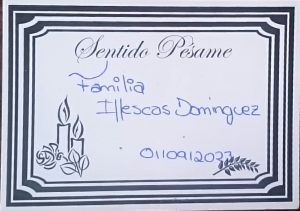 Sentido Pésame
Familia
Illescas Dominguez